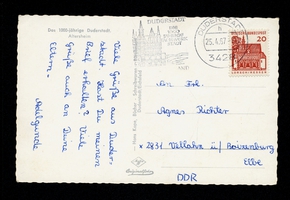 Das 1000-jährige Duderstadt
Allerstheim
Viele Grüße aus Duder-
stadt. Hast Du meinen
Brief erhalten? Viele
Grüße auch an Deine
Eltern.
Adelgunde
DUDERSTADT
DUDERSTADT
25.4.67
3428
20
An Frl.
Agnes Richter
2831 Vellahn ü/ Boizenburg
Elbe
DDR